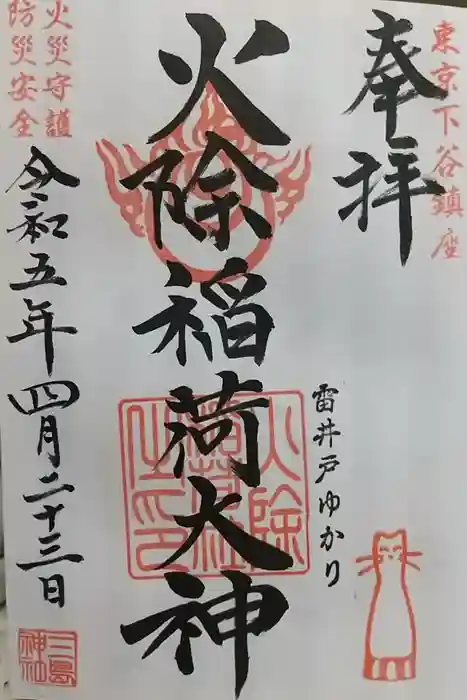 東京下谷鎮座
奉拝
雷井戸ゆかり
火除稲荷大神
火除稲荷社之印
火災守護
防災安全
令和五年四月二十三日
三島神社